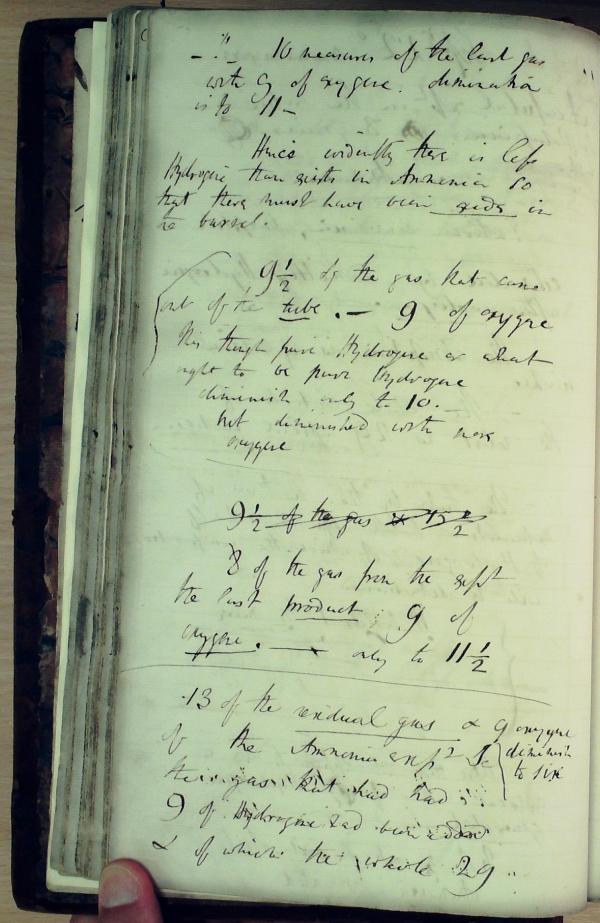 10 measures of the last gas
with 9 of oxygene. diminution
is to 11 -
Hence evidently there is less
Hydrogene than exists in Ammonia so
that there must have been in
the barrel.
9 1/2 of the gas that came
out of the tube . - 9 of oxygene
this though pure Hydrogene or what
ought to be pure Hydrogene
diminish only to 10. -
but diminished with more
oxygene
9 1/2 of the gas 15 1/2
8 of the gas from the expt
the last product ; 9 of
oxygene. — only to 11 1/2
13 of the residual gas & 9 oxygene
of the Ammonia expt diminish
to six
their gas that had had
9 of Hydrogene had been added
& of which the whole 29